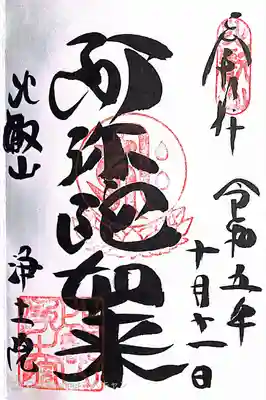 奉拝
令和五年
十月十一日
阿弥陀如来
比叡山
浄土院